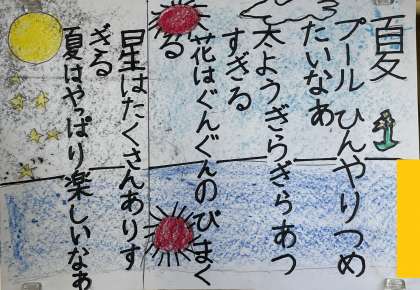 夏
プール ひんやりつめ
たいなあ
太ようぎらぎらあつ
すぎる
花はぐんぐんのびまく
る
星はたくさんありす
ぎる
夏はやっぱり楽しいなぁ